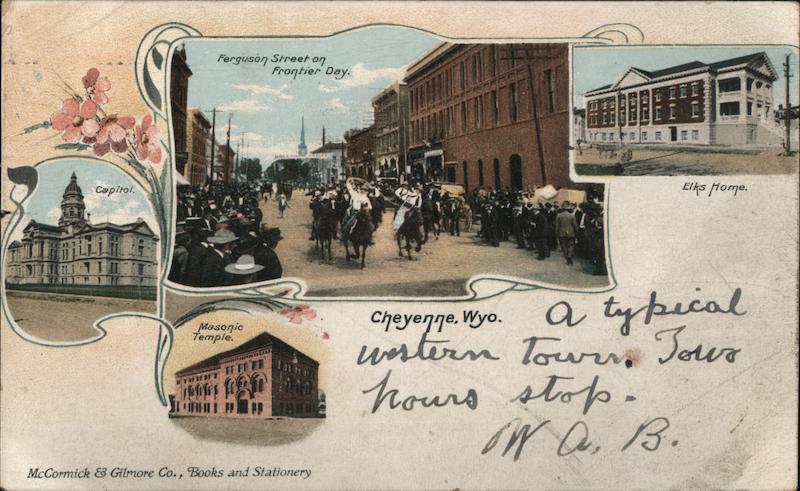 Ferguson Street on
Frontier Day.
Elks Home.
Capitol.
Masonic
Temple.
Cheyenne, Wyo.
A typical
western town. Two
hours stop.
W. A. B.
McCormick & Gilmore Co., Books and Stationery